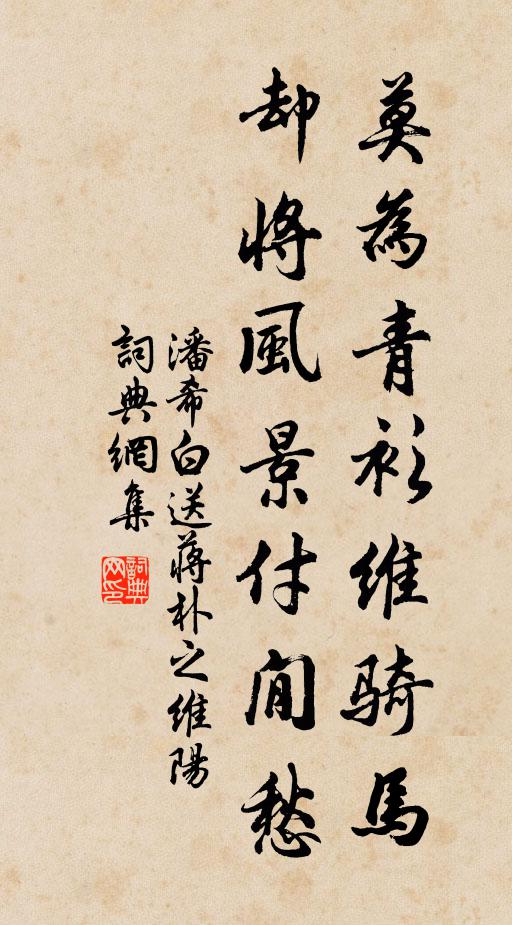 莫為青衫維騎馬
却將風景付閒愁
潘希白送蔣朴之維陽
詞典網集
詞典网印